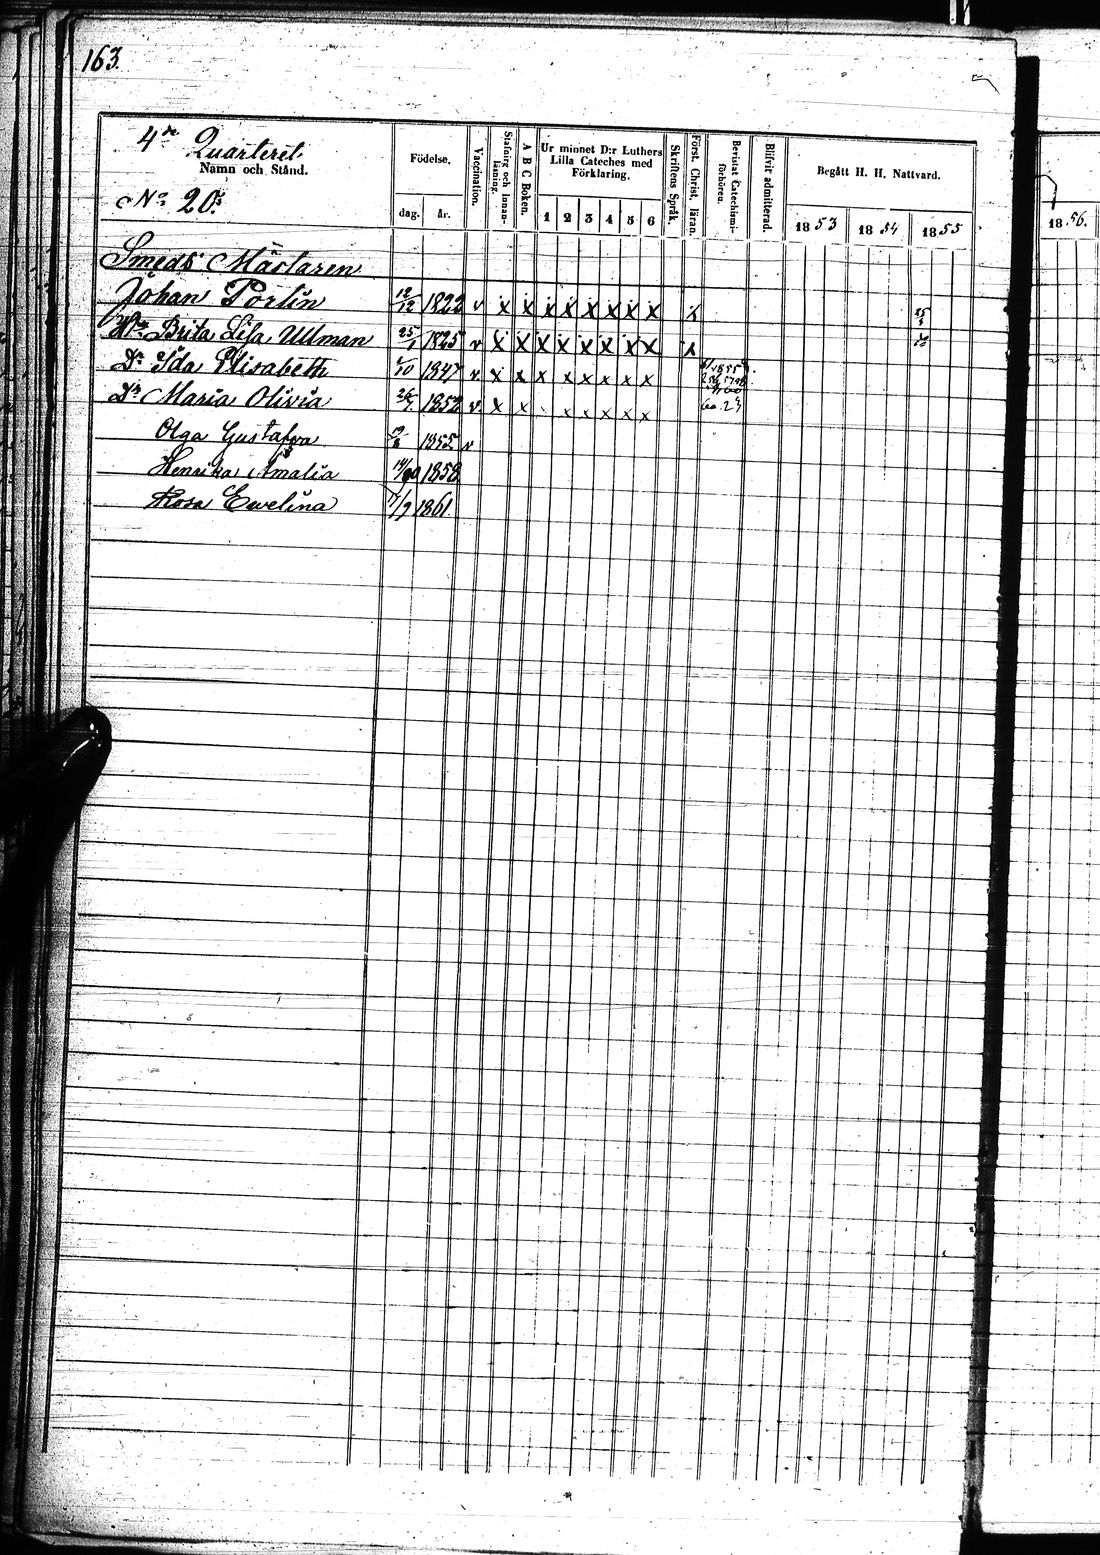 163.
4de Quarteret.
Namn och Stånd.
No 20.
Födelse.
dag. år.
Vaccination.
Stafning och Innanläsning.
A B C Boken.
Ur minnet D:r Luthers Lilla Cateches med Förklaring.
1 2 3 4 5 6
Skriftens Språk.
Först. Christ. läran.
Bevistat Catechismiförhören.
Blifvir admitterad.
Begått H. H. Nattvard.
1853 1854 1855
1856.
Smeds Mästaren
Johan Portin 12/12 1822 v x x x x x x x x x
Brita Lisa Ullman 25/1 1825 v x x x x x x x x x
Dr Ida Elisabeth 1847 v. x x x x x x x x
Dr Maria Olivia 1852 v. x x x x x x x
Olga Gustafva 1855 v
Henrika Amalia 1858
Rosa Ewelina 7/9 1861.